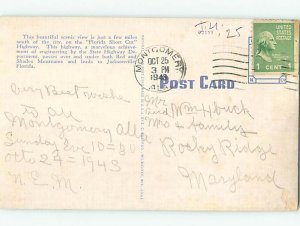 This beautiful scenic view is just a few miles
south of the city, on the "Florida Short Cut"
Highway. This highway, a marvelous achieve-
ment of engineering by the State Highway Depart-
ment, passes over and under both Red and
Shades Mountains and leads to Jacksonville,
Florida.
T.H.
.25
MONTGOMERY
OCT 25
3 PM
1943
1 CENT 1
POST CARD
Very Best wishes
to all
Montgomery Ala
Sunday Eve 10
Octo 24 - 1943
N.E.M.
Mr
and Wm Huck
Mrs & Family
Rocky Ridge
Maryland